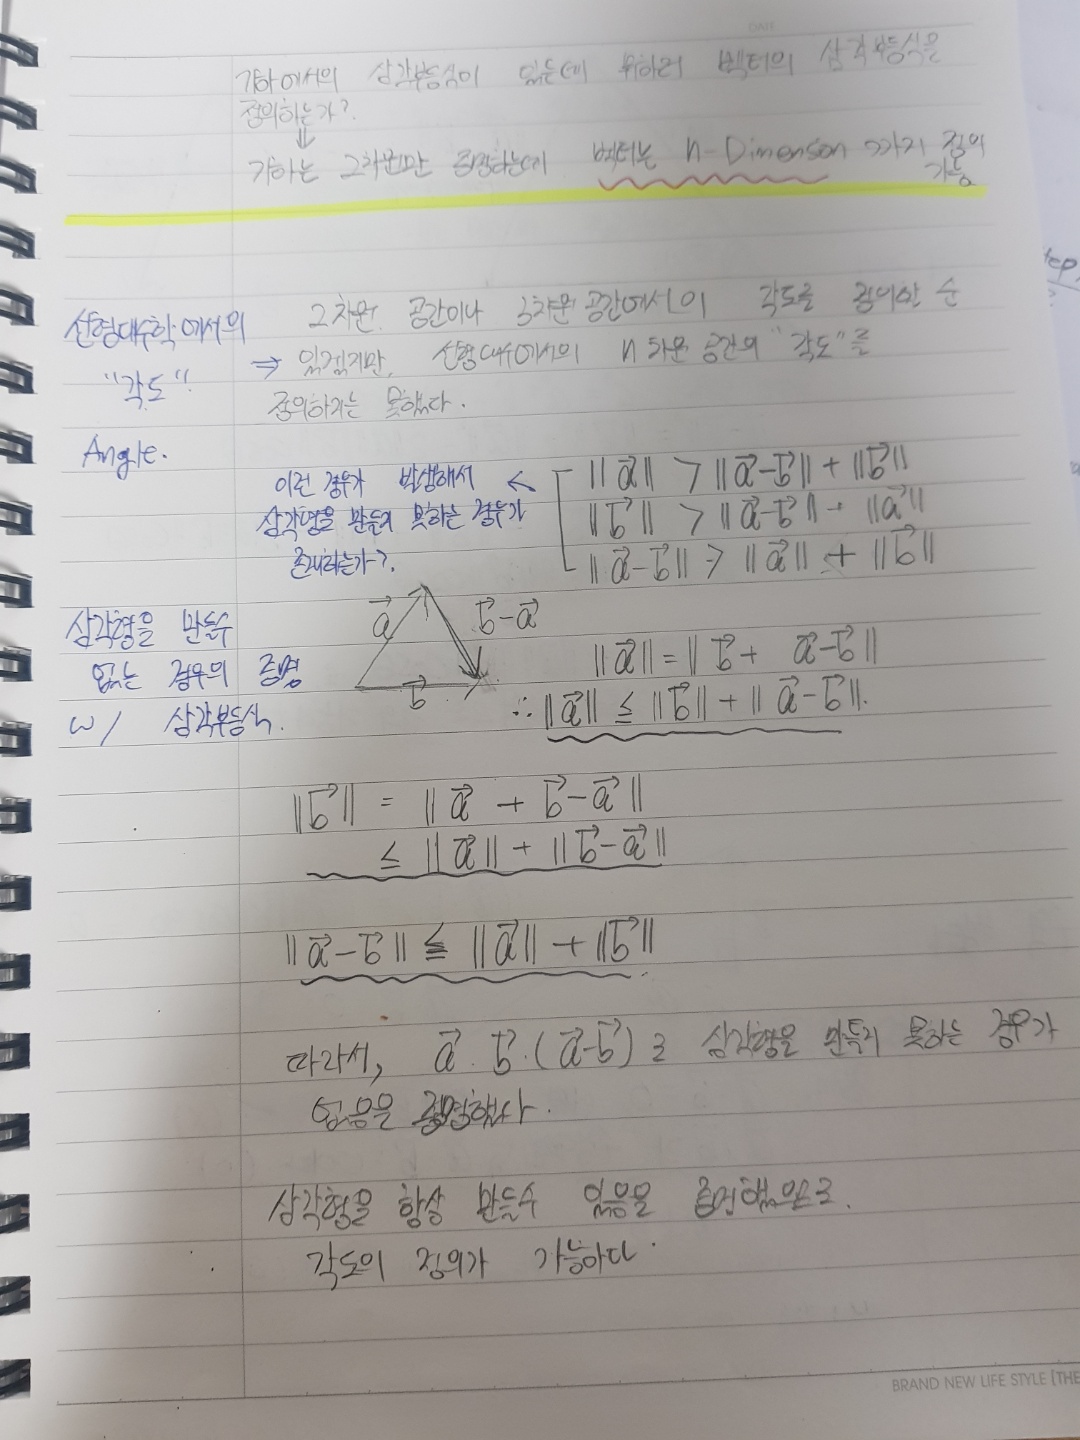 기하에서의 삼각부등식이 있는데 뭐하러 벡터의 삼각부등식을
정의하는가?
⇓
기하는 2차원만 증명하는데 벡터는 n-Dimenson 까지 정의
가능
선형대수학에서의
"각도"
Angle.
2차원 공간이나 3차원 공간에서의 각도를 정의할 순
⇒ 있겠지만, 선형대수에서의 n 차원 공간의 "각도"를
정의하지는 못했다.
이런 경우가 발생해서 ←
삼각형을 만들지 못하는 경우가
존재하는가?
||a⃗|| < ||a⃗-b⃗|| + ||b⃗||
||b⃗|| < ||a⃗-b⃗|| + ||a⃗||
||a⃗-b⃗|| < ||a⃗|| + ||b⃗||
삼각형을 만들수
없는 경우의 증명
w/ 삼각부등식.
a⃗ b⃗-a⃗
b⃗
||a⃗|| = ||b⃗ + a⃗-b⃗||
∴ ||a⃗|| ≤ ||b⃗|| + ||a⃗-b⃗||.
||b⃗|| = ||a⃗ + b⃗-a⃗||
≤ ||a⃗|| + ||b⃗-a⃗||
||a⃗-b⃗|| ≤ ||a⃗|| + ||b⃗||
따라서, a⃗. b⃗. (a⃗-b⃗)로 삼각형을 만들지 못하는 경우가
없음을 증명했다.
삼각형을 항상 만들수 있음을 증명했으므로.
각도의 정의가 가능하다.
BRAND NEW LIFE STYLE [THE